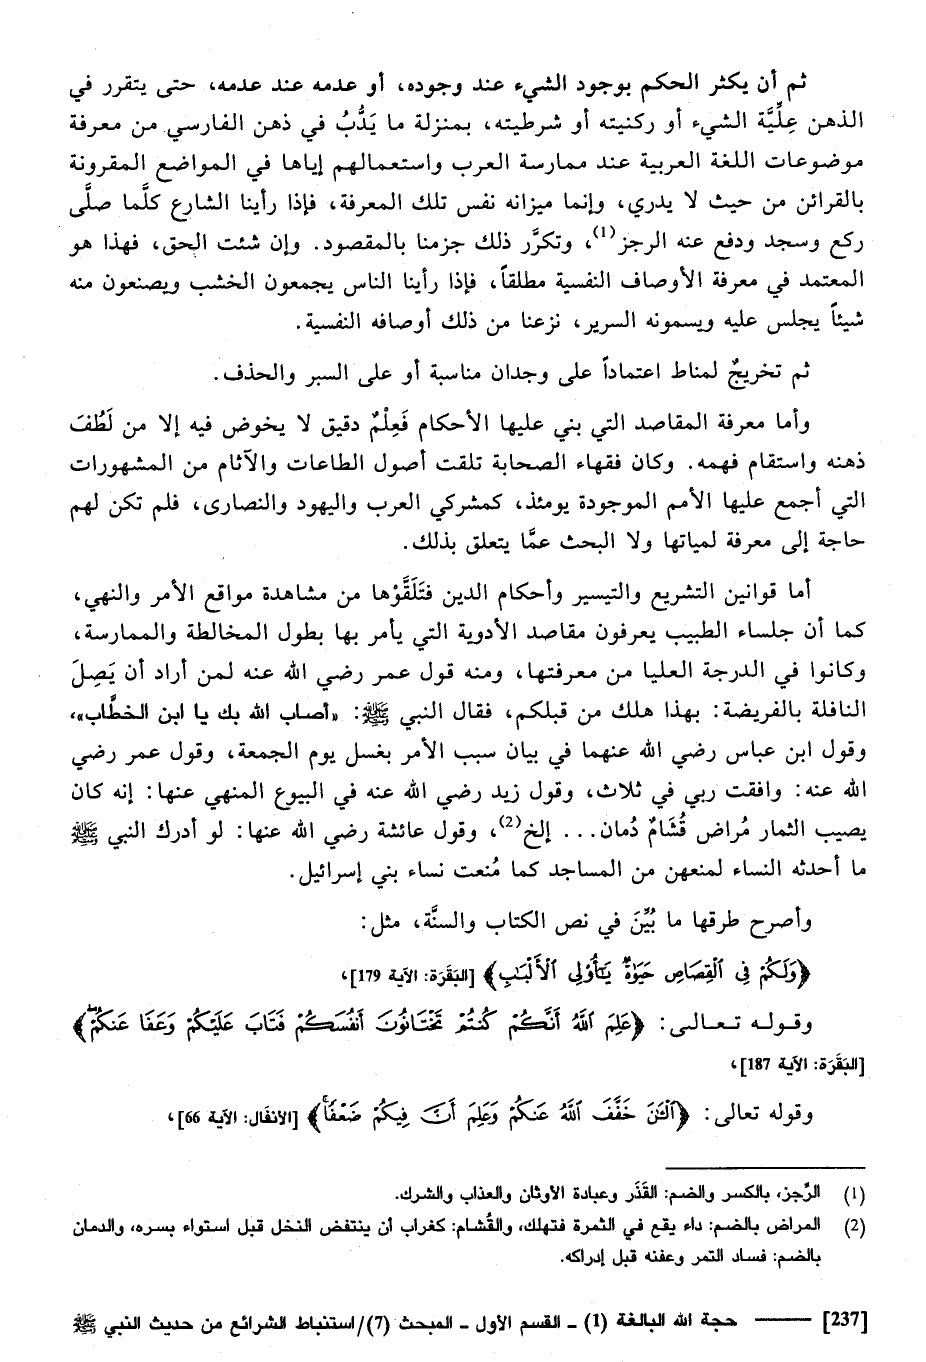 ثم أن يكثر الحكم بوجود الشيء عند وجوده، أو عدمه عند عدمه، حتى يتقرر في
الذهن عِلِّيَّة الشيء أو ركنيته أو شرطيته، بمنزلة ما يَدُّبُ في ذهن الفارسي من معرفة
موضوعات اللغة العربية عند ممارسة العرب واستعمالهم إياها في المواضع المقرونة
بالقرائن من حيث لا يدري، وإنما ميزانه نفس تلك المعرفة، فإذا رأينا الشارع كلَّما صلَّى
ركع وسجد ودفع عنه الرجز(1)، وتكرَّر ذلك جزمنا بالمقصود. وإن شئت الحق، فهذا هو
المعتمد في معرفة الأوصاف النفسية مطلقاً، فإذا رأينا الناس يجمعون الخشب ويصنعون منه
شيئاً يجلس عليه ويسمونه السرير، نزعنا من ذلك أوصافه النفسية.
ثم تخريجٌ لمناط اعتماداً على وجدان مناسبة أو على السبر والحذف.
وأما معرفة المقاصد التي بني عليها الأحكام فَعِلْمٌ دقيق لا يخوض فيه إلا من لَطُفَ
ذهنه واستقام فهمه. وكان فقهاء الصحابة تلقت أصول الطاعات والآثام من المشهورات
التي أجمع عليها الأمم الموجودة يومئذ، كمشركي العرب واليهود والنصارى، فلم تكن لهم
حاجة إلى معرفة لمياتها ولا البحث عمَّا يتعلق بذلك.
أما قوانين التشريع والتيسير وأحكام الدين فتَلَقَّوْها من مشاهدة مواقع الأمر والنهي،
كما أن جلساء الطبيب يعرفون مقاصد الأدوية التي يأمر بها بطول المخالطة والممارسة،
وكانوا في الدرجة العليا من معرفتها، ومنه قول عمر رضي الله عنه لمن أراد أن يَصِلَ
النافلة بالفريضة: بهذا هلك من قبلكم، فقال النبي ﷺ: «أصاب الله بك يا ابن الخطَّاب»،
وقول ابن عباس رضي الله عنهما في بيان سبب الأمر بغسل يوم الجمعة، وقول عمر رضي
الله عنه: وافقت ربي في ثلاث، وقول زيد رضي الله عنه في البيوع المنهي عنها: إنه كان
يصيب الثمار مُراض قُشَامٌ دُمان... إلخ(2)، وقول عائشة رضي الله عنها: لو أدرك النبي ﷺ
ما أحدثه النساء لمنعهن من المساجد كما مُنعت نساء بني إسرائيل.
وأصرح طرقها ما بُيِّنَ في نص الكتاب والسنَّة، مثل:
﴿وَلَكُمْ فِى ٱلْقِصَاصِ حَيَوٰةٌ يَٰٓأُو۟لِى ٱلْأَلْبَٰبِ﴾ [البَقَرَة: الآية 179]،
وقوله تعالى: ﴿عَلِمَ ٱللَّهُ أَنَّكُمْ كُنتُمْ تَخْتَانُونَ أَنفُسَكُمْ فَتَابَ عَلَيْكُمْ وَعَفَا عَنكُمْ ۖ﴾
[البَقَرَة: الآية 187]،
وقوله تعالى: ﴿ٱلْـَٰٔنَ خَفَّفَ ٱللَّهُ عَنكُمْ وَعَلِمَ أَنَّ فِيكُمْ ضَعْفًا ۚ﴾ [الأنفَال: الآية 66]،
(1) الرِّجز، بالكسر والضم: القَذَر وعبادة الأوثان والعذاب والشرك.
(2) المراض بالضم: داء يقع في الثمرة فتهلك، والقُشام: كغراب أن ينتفض النخل قبل استواء بسره، والدمان
بالضم: فساد التمر وعفنه قبل إدراكه.
[237] حجة الله البالغة (1) ــ القسم الأول ــ المبحث (7)/استنباط الشرائع من حديث النبي ﷺ